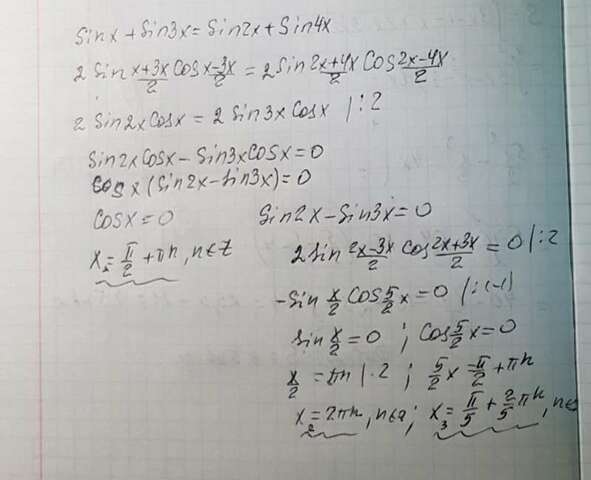 Sinx + Sin3x = Sin2x + Sin4x
2 Sin (x+3x)/2 Cos (x-3x)/2 = 2 Sin (2x+4x)/2 Cos (2x-4x)/2
2 Sin2x Cosx = 2 Sin3x Cosx |:2
Sin2x Cosx - Sin3x Cosx = 0
Cosx (Sin2x - Sin3x) = 0
Cosx = 0 Sin2x - Sin3x = 0
x₁ = π/2 + πn, n∈Z 2 Sin (2x-3x)/2 Cos (2x+3x)/2 = 0 |:2
-Sin x/2 Cos 5/2 x = 0 |:(-1)
Sin x/2 = 0 ; Cos 5/2 x = 0
x/2 = πn |·2 ; 5/2 x = π/2 + πn
x₂ = 2πn, n∈z ; x₃ = π/5 + 2/5 πn, n∈